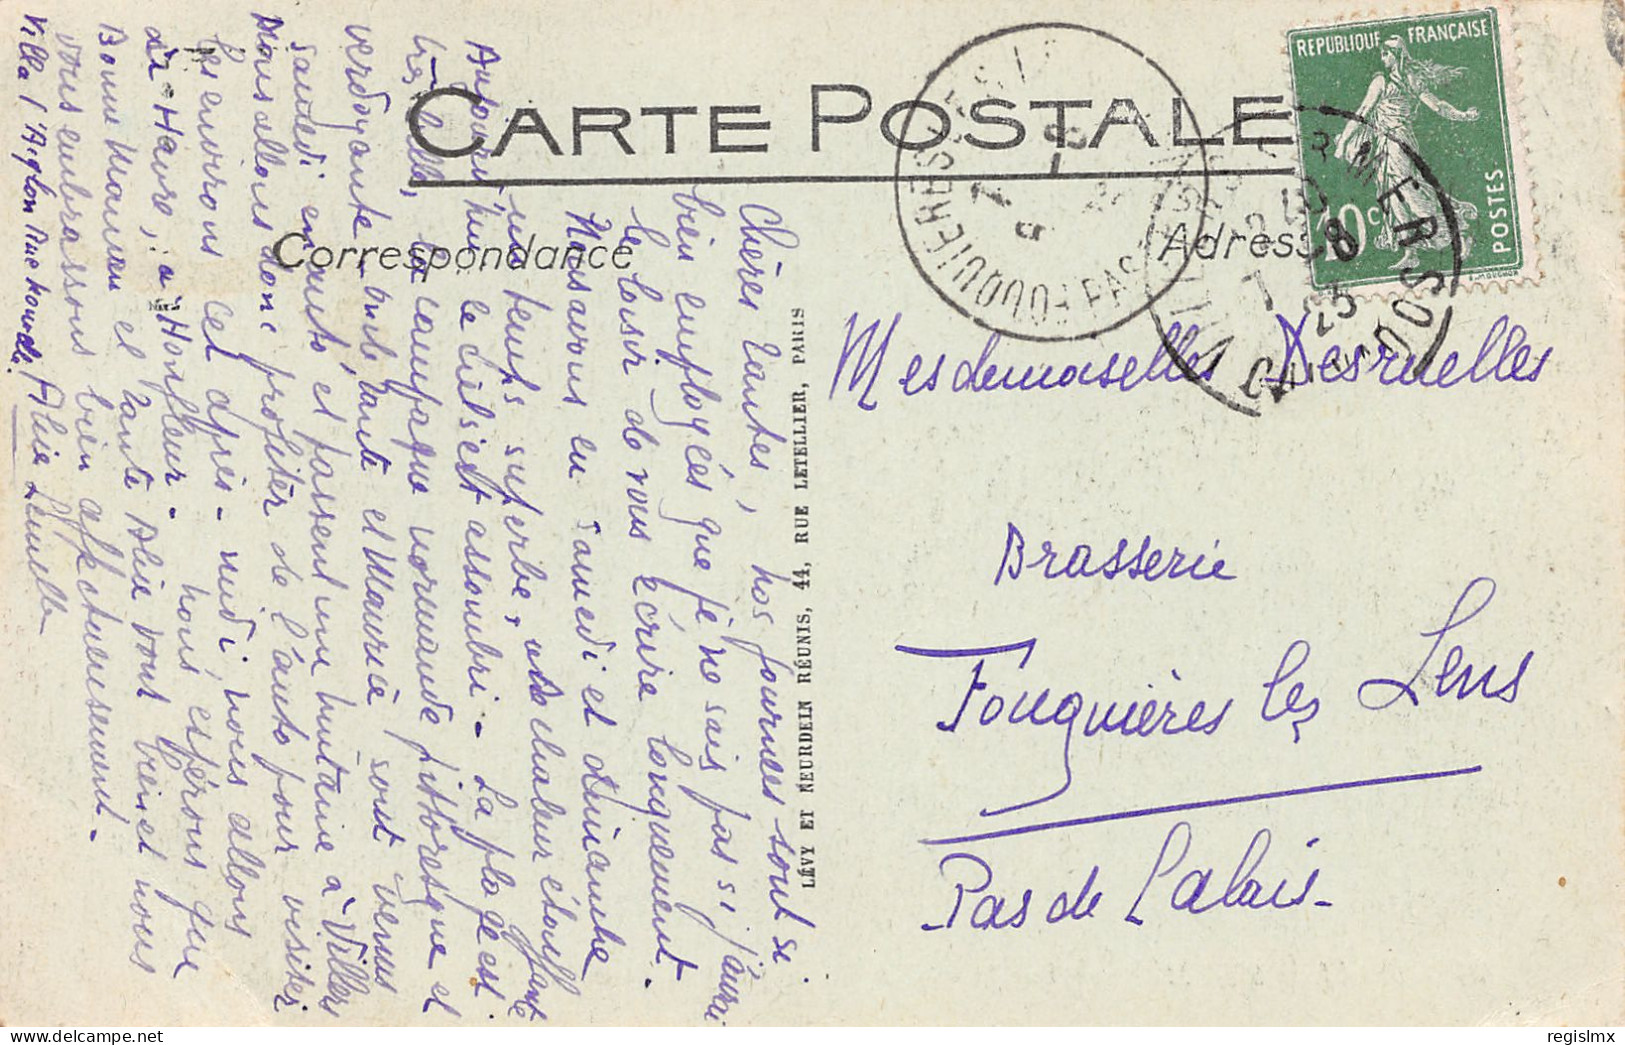 CARTE POSTALE
Correspondance
Adresse
REPUBLIQUE FRANÇAISE
10c
POSTES
VILLERS
CALVADOS
FOUQUIERES-LES-L
PAS
7 - 8
25
Mesdemoiselles Desruelles
Brasserie
Fouquières les Lens
Pas de Calais -
LÉVY ET NEURDEIN RÉUNIS, 44, RUE LETELLIER, PARIS
Chères Tantes, nos journées sont si
bien employées que je ne sais pas si j'aurai
le loisir de vous écrire longuement.
Nous avons eu samedi et dimanche
un temps superbe, une chaleur étouffante
Aujourd'hui le ciel s'est assombri - La plage est
très belle, la campagne normande pittoresque et
verdoyante, Tante et Maurice sont venus
samedi en auto et passent une huitaine à Villers
Nous allons donc profiter de l'auto pour visiter
les environs cet après-midi, nous allons
au Havre, à Honfleur - nous espérons que
Bonne Maman et Tante Alice vont bien et nous
vous embrassons bien affectueusement -
Villa l'Aiglon Rue Alice Lemelle
regislmx